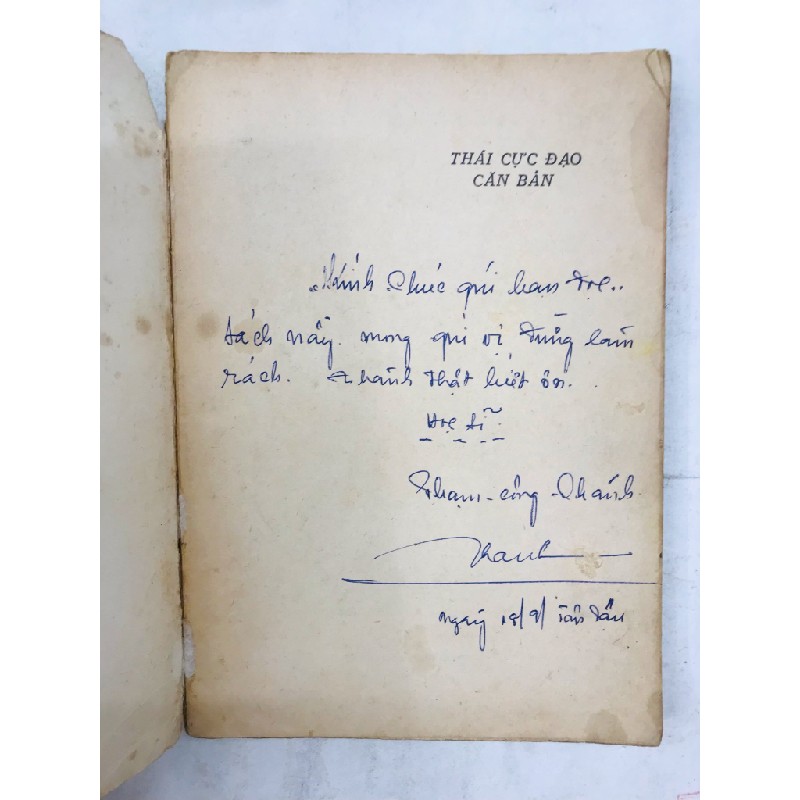 THÁI CỰC ĐẠO
CĂN BẢN
"Kính chúc quí bạn đọc..
sách nầy. mong quí vị đừng làm
rách. Thành thật biết ơn.
Học sĩ
Phạm - công - Chánh
ngày 18/9/